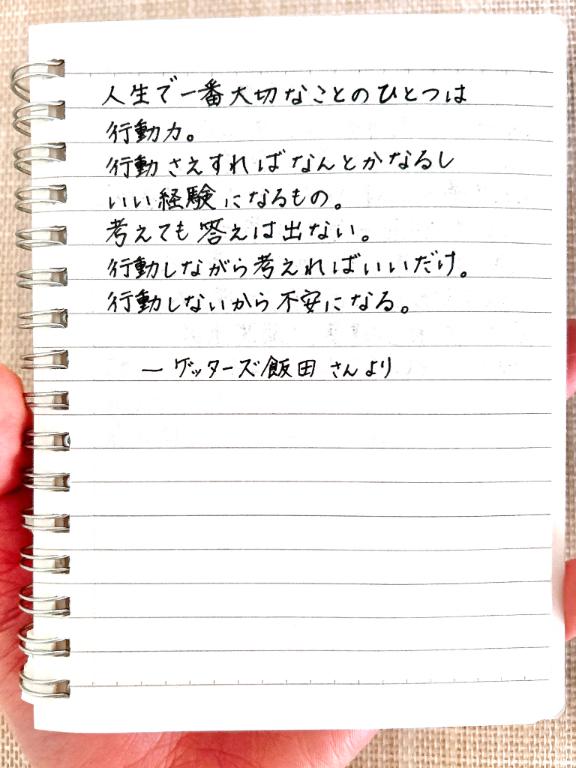 人生で一番大切なことのひとつは
行動力。
行動さえすればなんとかなるし
いい経験になるもの。
考えても答えは出ない。
行動しながら考えればいいだけ。
行動しないから不安になる。
― ゲッターズ飯田さんより